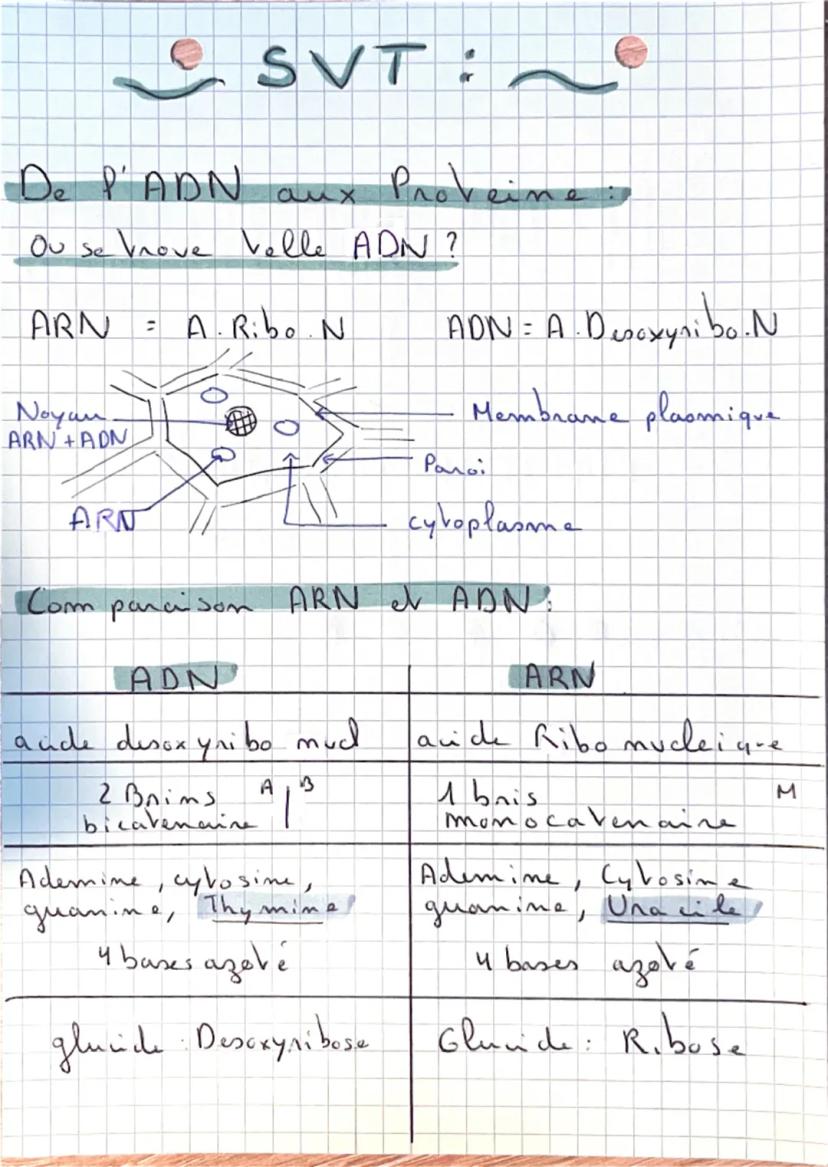 SVT :
De l'ADN aux Proteine :
Ou se trove telle ADN ?
ARN = A.Ribo.N
ADN = A.Desoxyribo.N
Noyau
ARN + ADN
Membrane plasmique
Paroi
ARN
cytoplasme
Comparaison ARN et ADN :
ADN
ARN
acide desoxyribo nucl
acide Ribo nucleique
2 Brins
bicatenaire
A | B
1 bris
monocatenaire
M
Ademine, cytosine,
guanine, Thymine
4 bases azoté
Ademine, Cytosine
guanine, Uracile
4 bases azoté
glucide : Desoxyribose
Glucide : Ribose